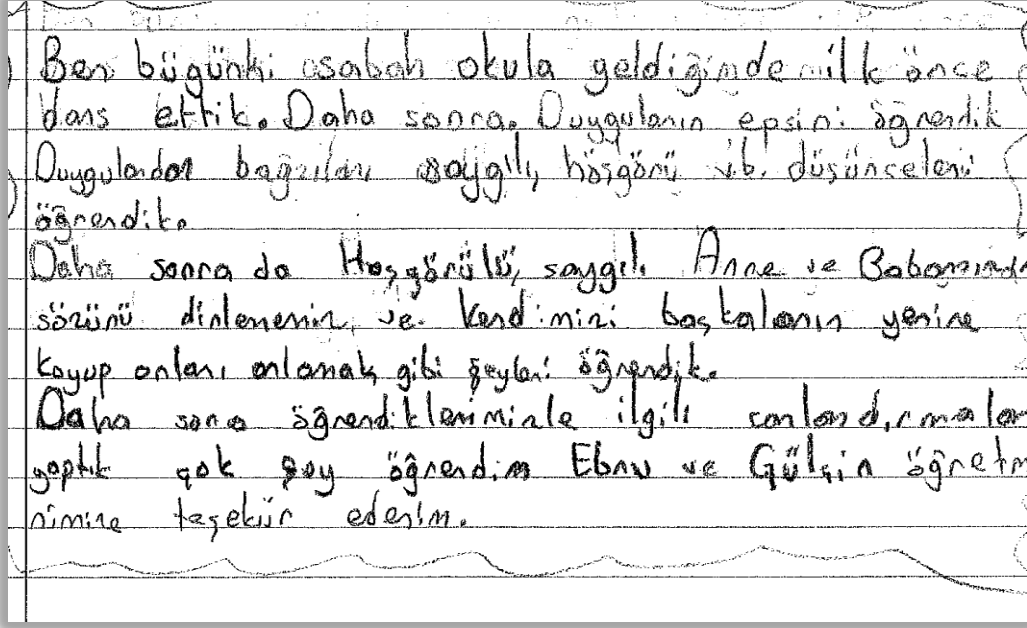 Ben bügünki sabah okula geldiğimde ilk önce
dans ettik. Daha sonra. Duyguların epsini öğrendik
Duygulardan bağzıları saygılı, hösgörü vb. düşünceleri
öğrendik.
Daha sonra da Hoşgörülü, saygılı Anne ve Babamızın
sözünü dinlememiz, ve kendimizi başkalarının yerine
koyup onları anlamak gibi şeyleri öğrendik.
Daha sora öğrendiklerimizle ilgili canlandırmalar
yaptık çok şey öğrendim Ebru ve Gülçin öğretm
nimize teşekür ederim.